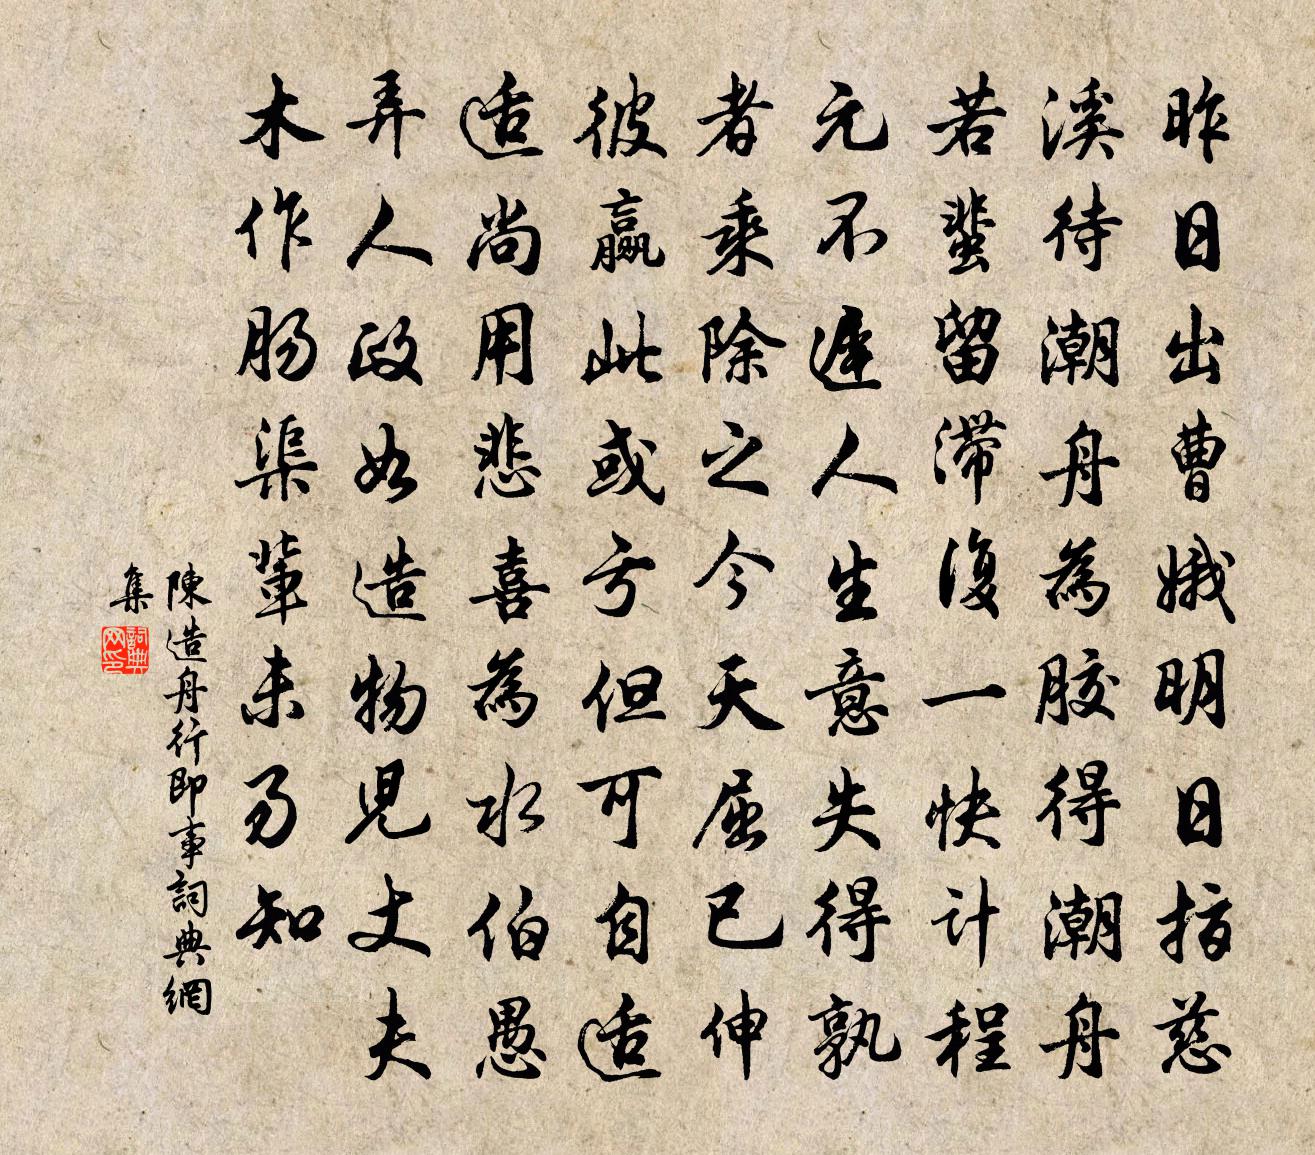 昨日出曹娥明日指慈
溪待潮舟為膠得潮舟
若蜚留滯復一快計程
元不遲人生意失得孰
者乘除之今天屈已伸
彼贏此或亏但可自适
适尚用悲喜為水伯愚
弄人政如造物兒丈夫
木作肠渠輩未易知
陳造舟行即事詞典網
集
詞典
网印